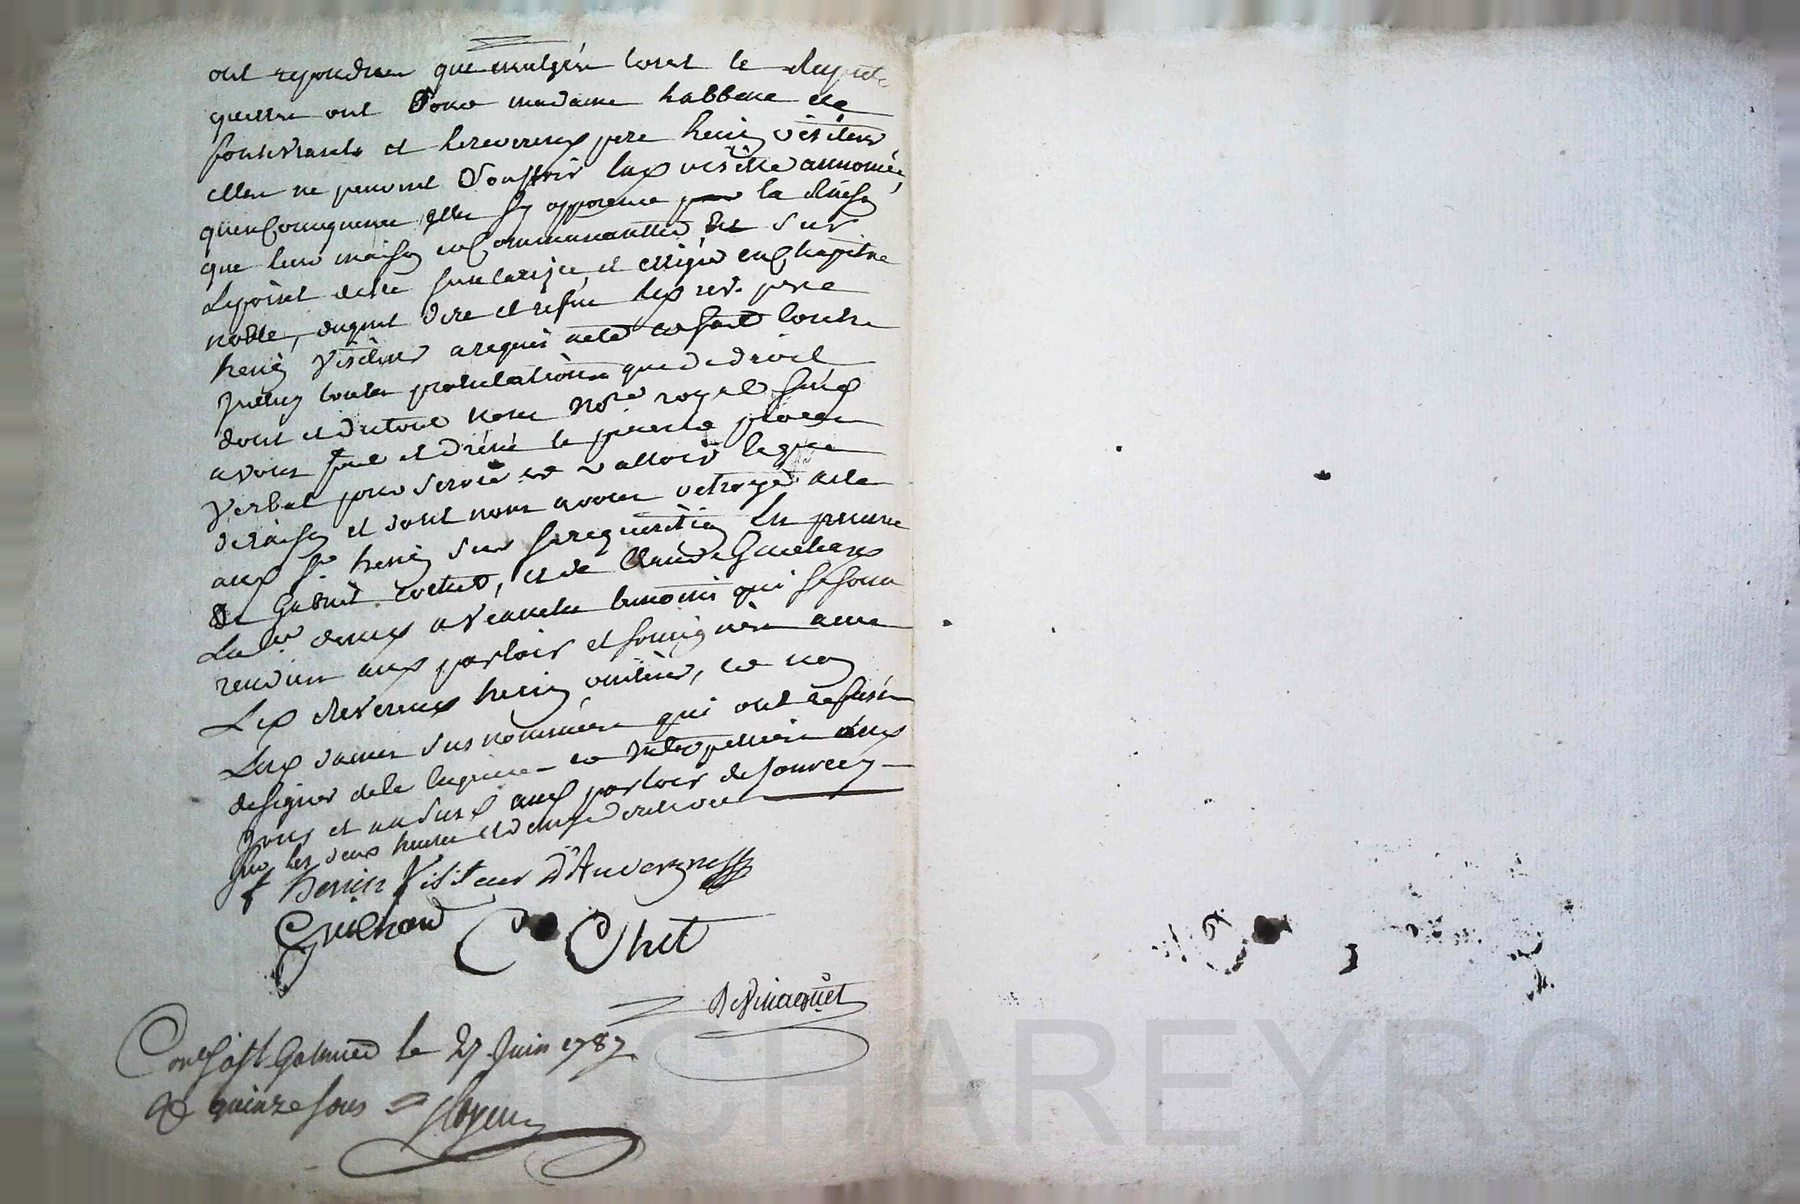 ont repondües que malgré tout le respect
quelles ont Pour madame labbesse de
fontevrault et le reverend pere henin visiteur
elles ne peuvent Souffrir lad visitte annoncée,
quen Consequence elles sy opposent par la raison
que leur maison en Commanautté est Sur
Lepoint detre secularizée, et errigée en Chapitre
noble, duquel dire et refus led rev. pere
henin Visiteur a requis acte et fait toutes
toutes protestations que de droit
dont et du tout nous Nore royal susd
avons fait et dressé le present proces
Verbal pour Servir et valloir leque
de raison et dont nous avons octroyé acte
aud Sr henin Sur sa requisition En presence
De Gabriel Cochet, et de Claude Guilhard
La deux temoins qui se sont
rendus aud parloir et soussignés avec
Led Reverend henin visiteur, et non
Lesd dames susnommées qui ont refusé
de signer de le requises et interpellées aud
jour et an susd aud parloir de Jourcey
sur les deux heures et demy de relevée
f henin Visiteur D'Auvergne
Guilhard Cochet
Devinaquet
Conlé a St Galmier le 27 Juin 1787
R quinze sous
CHAREYRON